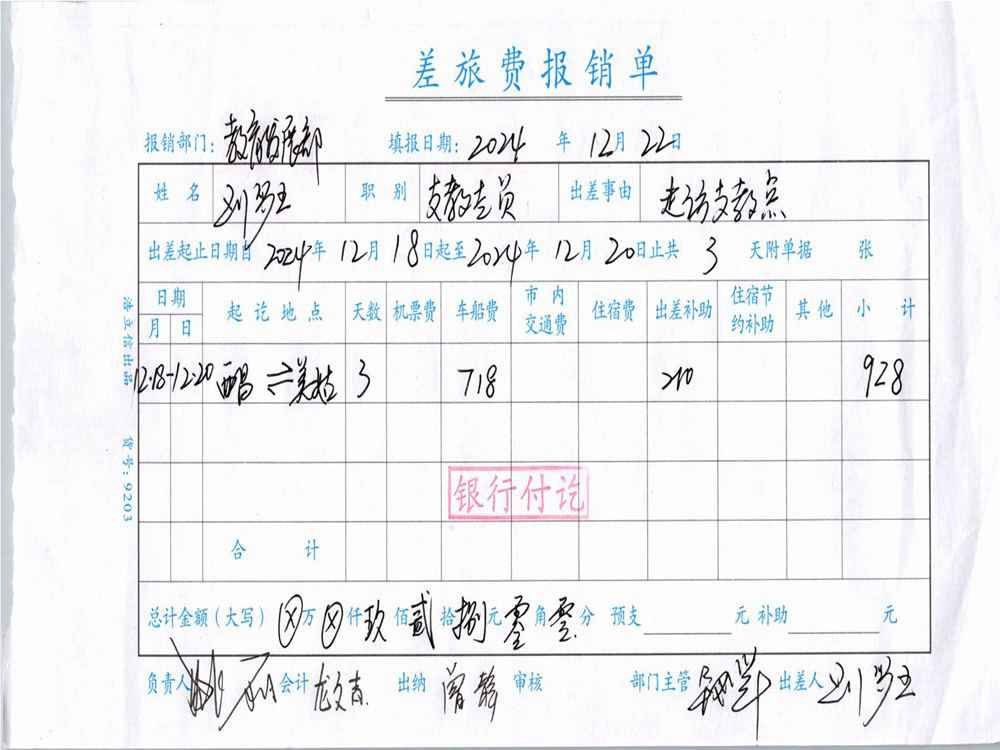 差旅费报销单
报销部门：教育发展部 填报日期：2024年12月22日
姓名 职别 支教专员 出差事由 走访支教点
出差起止日期自2024年12月18日起至2024年12月20日止共3天附单据 张
日期 起讫地点 天数 机票费 车船费 市内交通费 住宿费 出差补助 住宿节约补助 其他 小计
月 日
12.18-12.20 西昌⇌美姑 3 718 210 928
银行付讫
合计
总计金额（大写）ⓧ万ⓧ仟玖佰贰拾捌元零角零分 预支 元 补助 元
负责人 会计 龙文春 出纳 曾静 审核 部门主管 出差人
浩立信出品 货号：9203